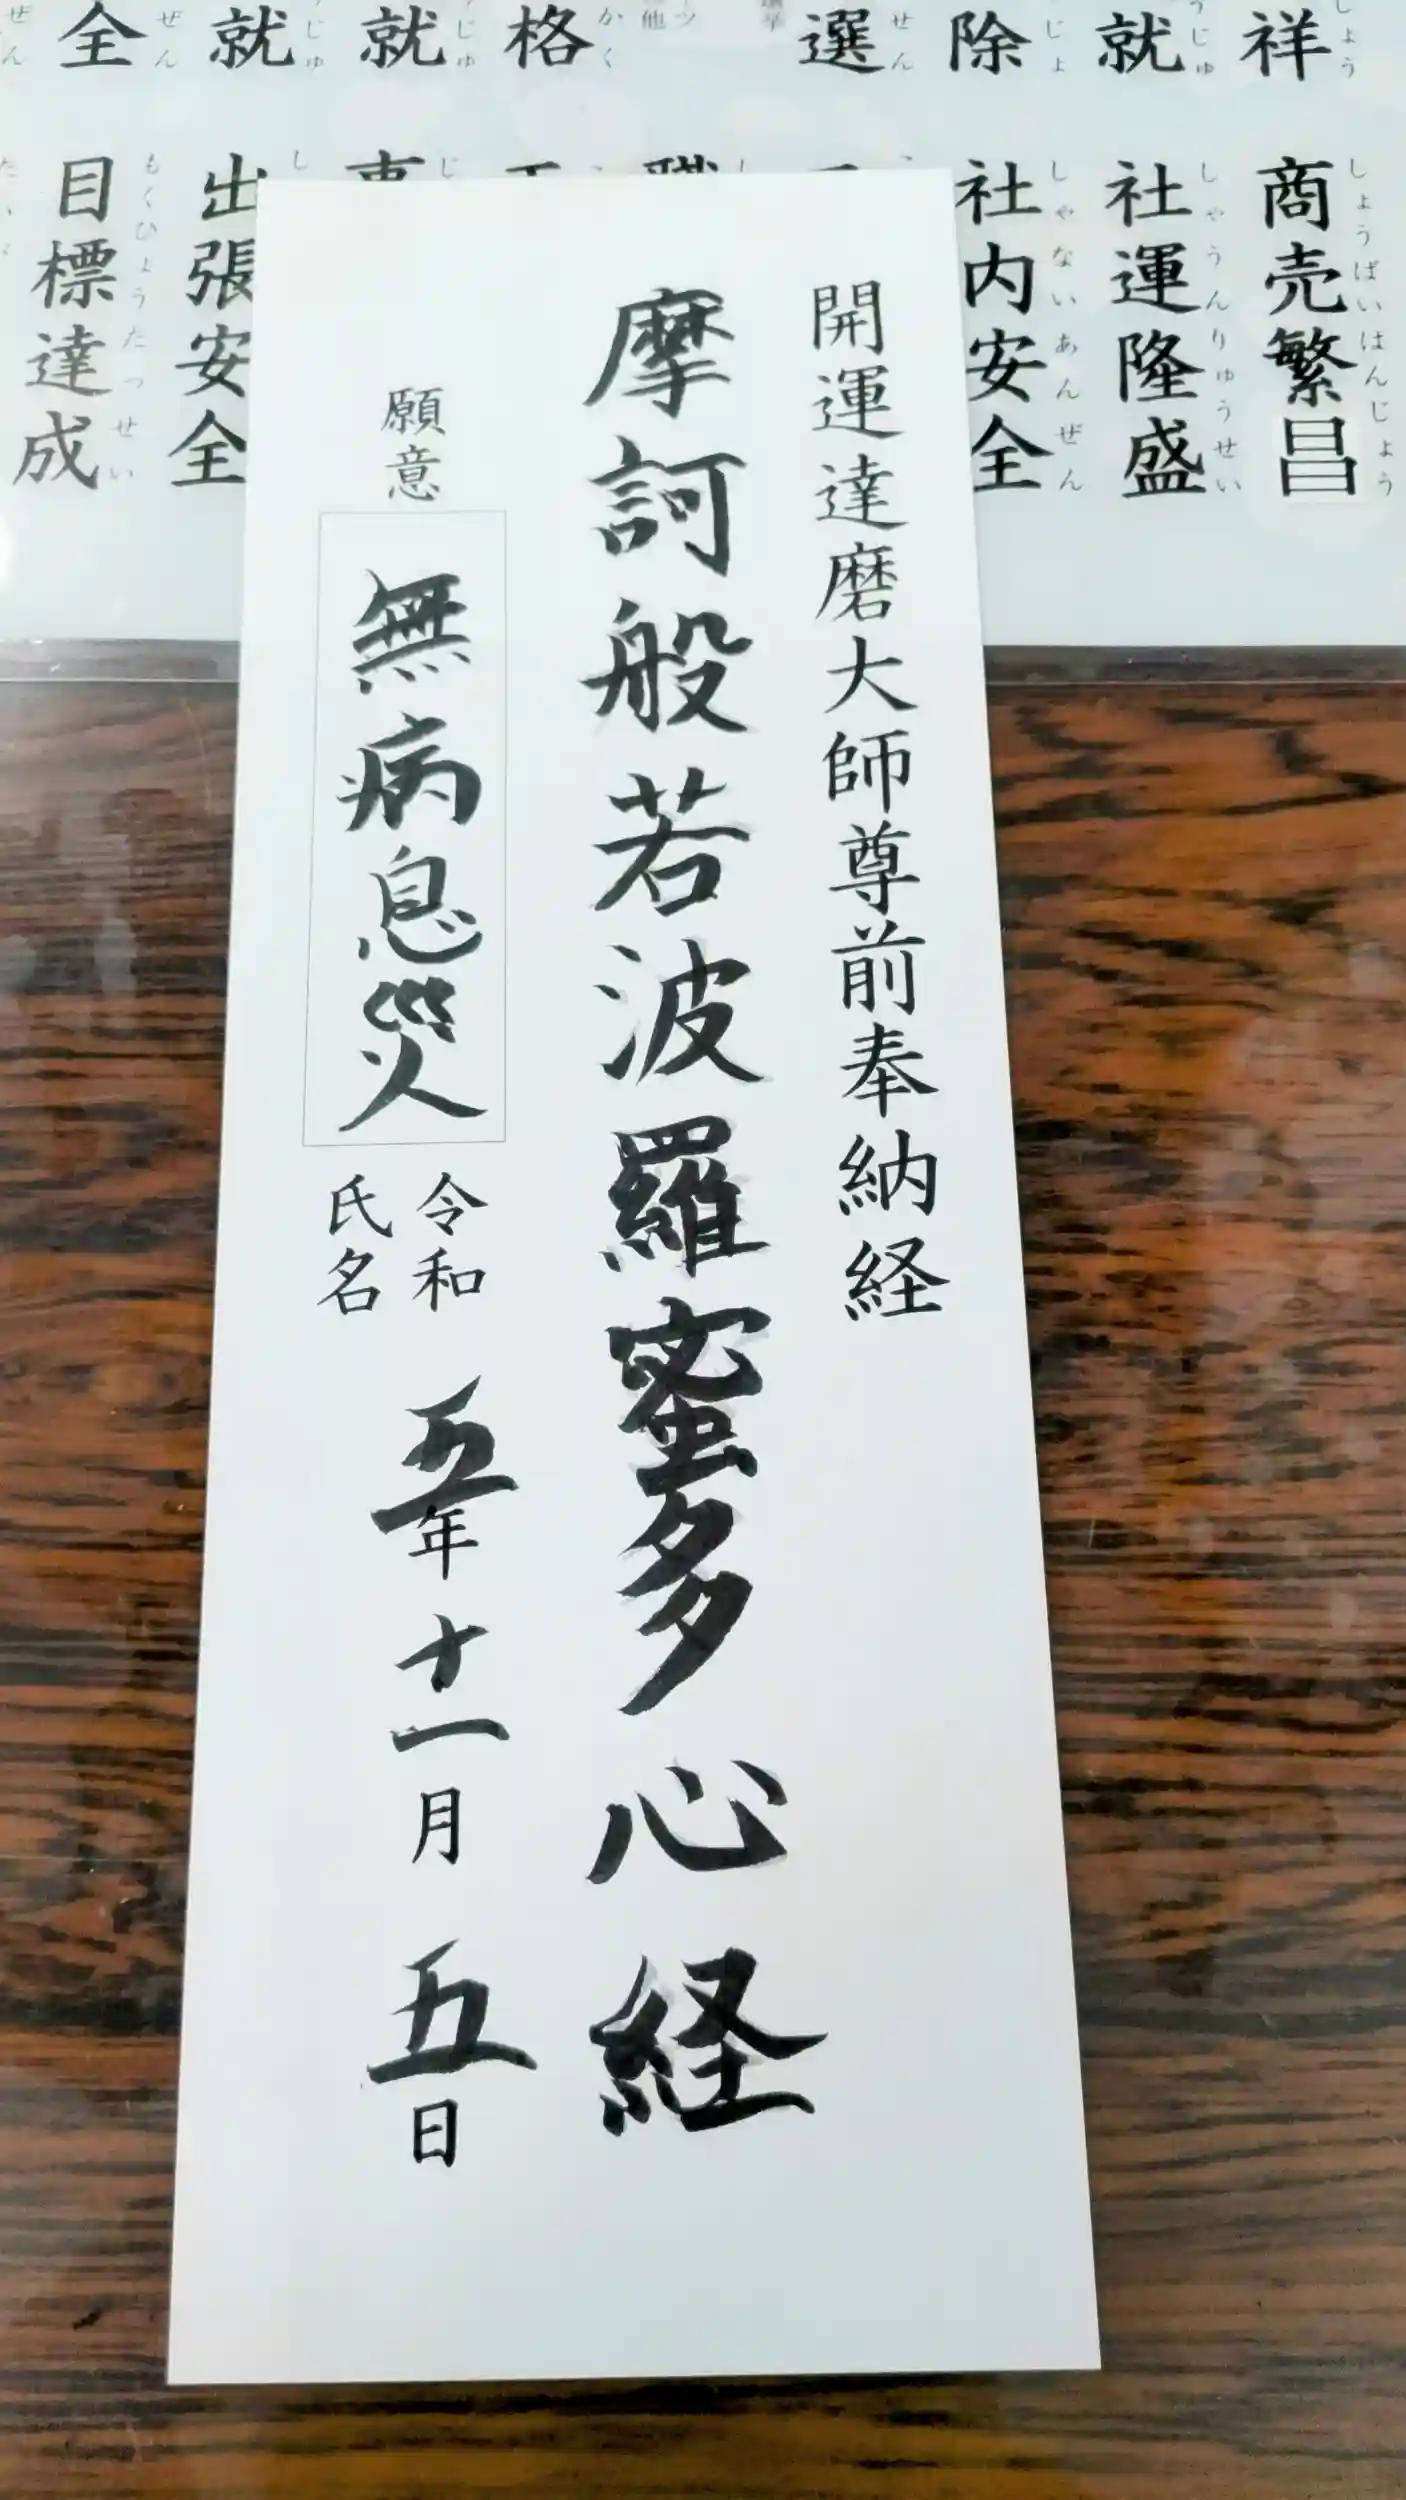 開運達磨大師尊前奉納経
摩訶般若波羅蜜多心経
願意
無病息災
令和 五年 十一月 五日
氏名
祥
しょう
商売繁昌
しょうばいはんじょう
就
社運隆盛
しゃうんりゅうせい
除
じょ
社内安全
しゃないあんぜん
選
せん
格
かく
就
就
じゅ
出張安全
全
ぜん
目標達成
もくひょうたっせい